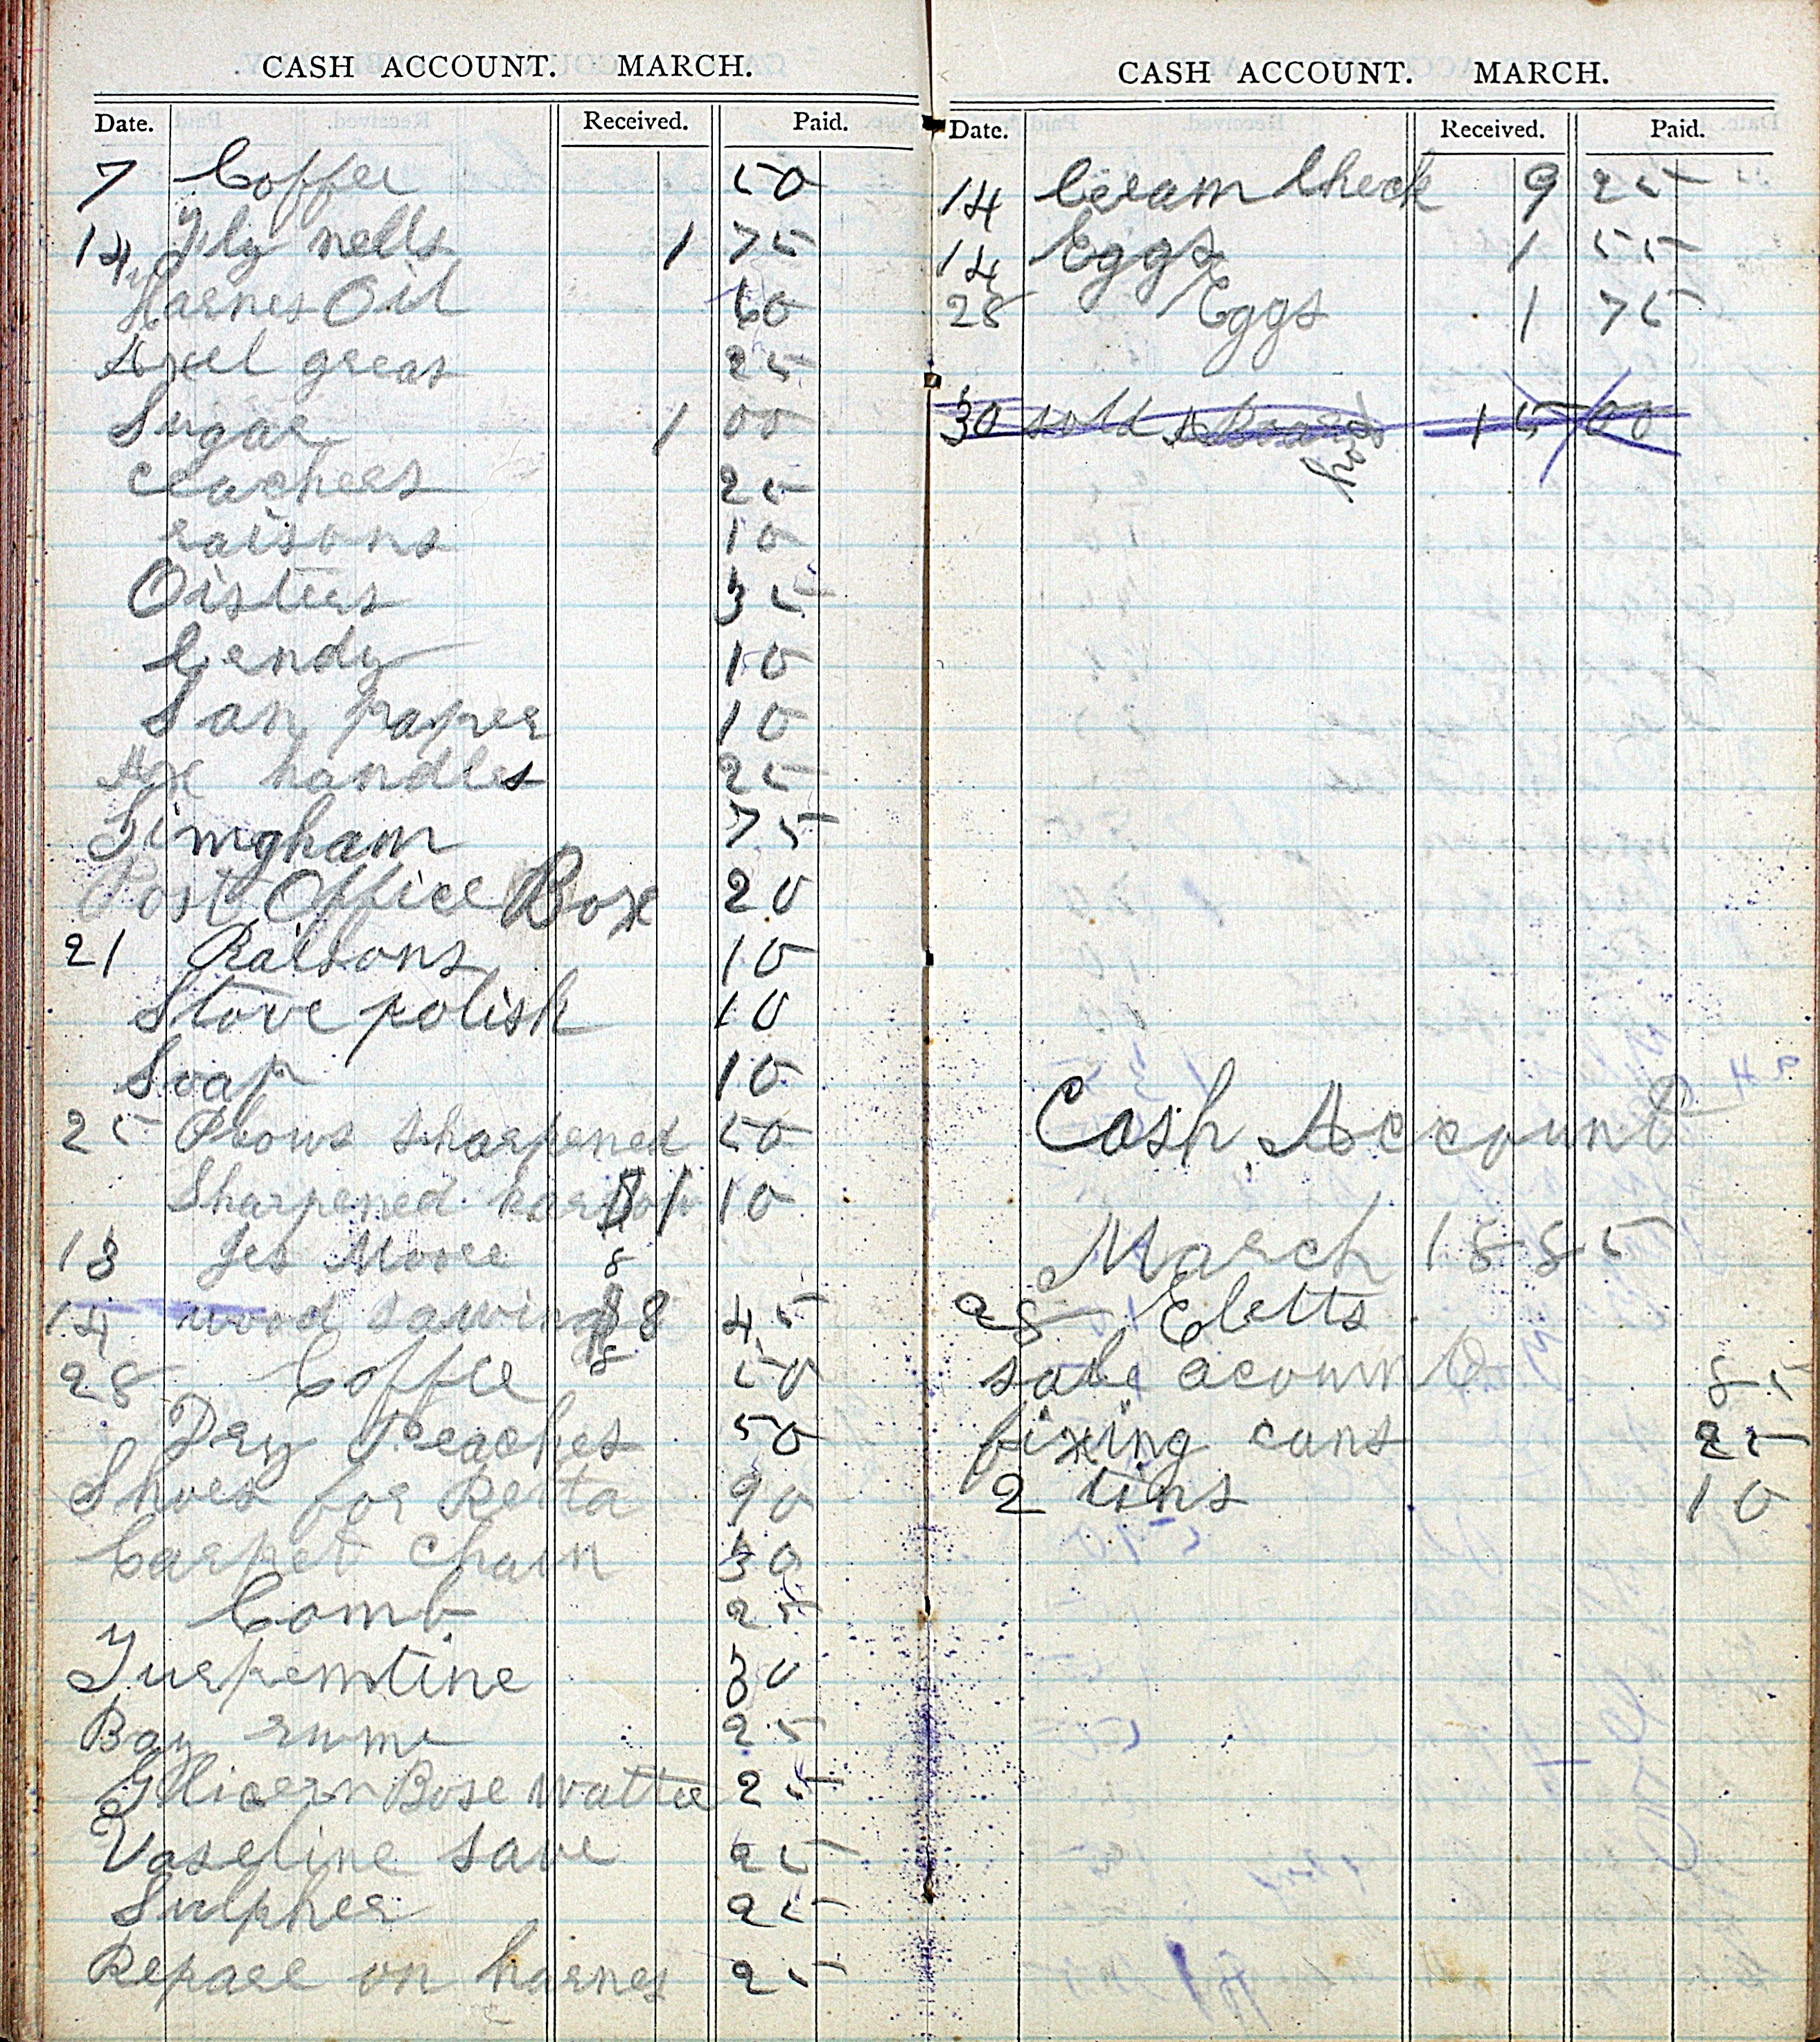 CASH ACCOUNT. MARCH.
Date. Received. Paid.
7 Coffee 50
14 Fly nells 1 75
Harnes Oil 60
Axel greas 25
Sugar 1 00
crachers 25
raisons 10
Oisters 35
Cendy 10
San paper 10
Axe handles 25
Gingham 75
Post Office Box 20
21 Raisons 10
Stove polish 10
Soap 10
25 Plows sharpened 50
Sharpened harrow $1 10
13 Jes Moore 8
14 wood sawing $8 45
28 Coffee 50
Dry Peaches 50
Shoes for Retta 90
Carpet Chain 30
Comb 25
Turpemtine 30
Bay rumm 25
Glicern Rose Watter 25
Vaseline save 25
Sulpher 25
Repare on harnes 25
CASH ACCOUNT. MARCH.
Date. Received. Paid.
14 Cream Check 9 25
14 Eggs 1 55
28 Eggs 1 75
30 sold 15 00
Cash Account
March 1885
28 Eletts
sale acount 85
fixing cans 25
2 tins 10